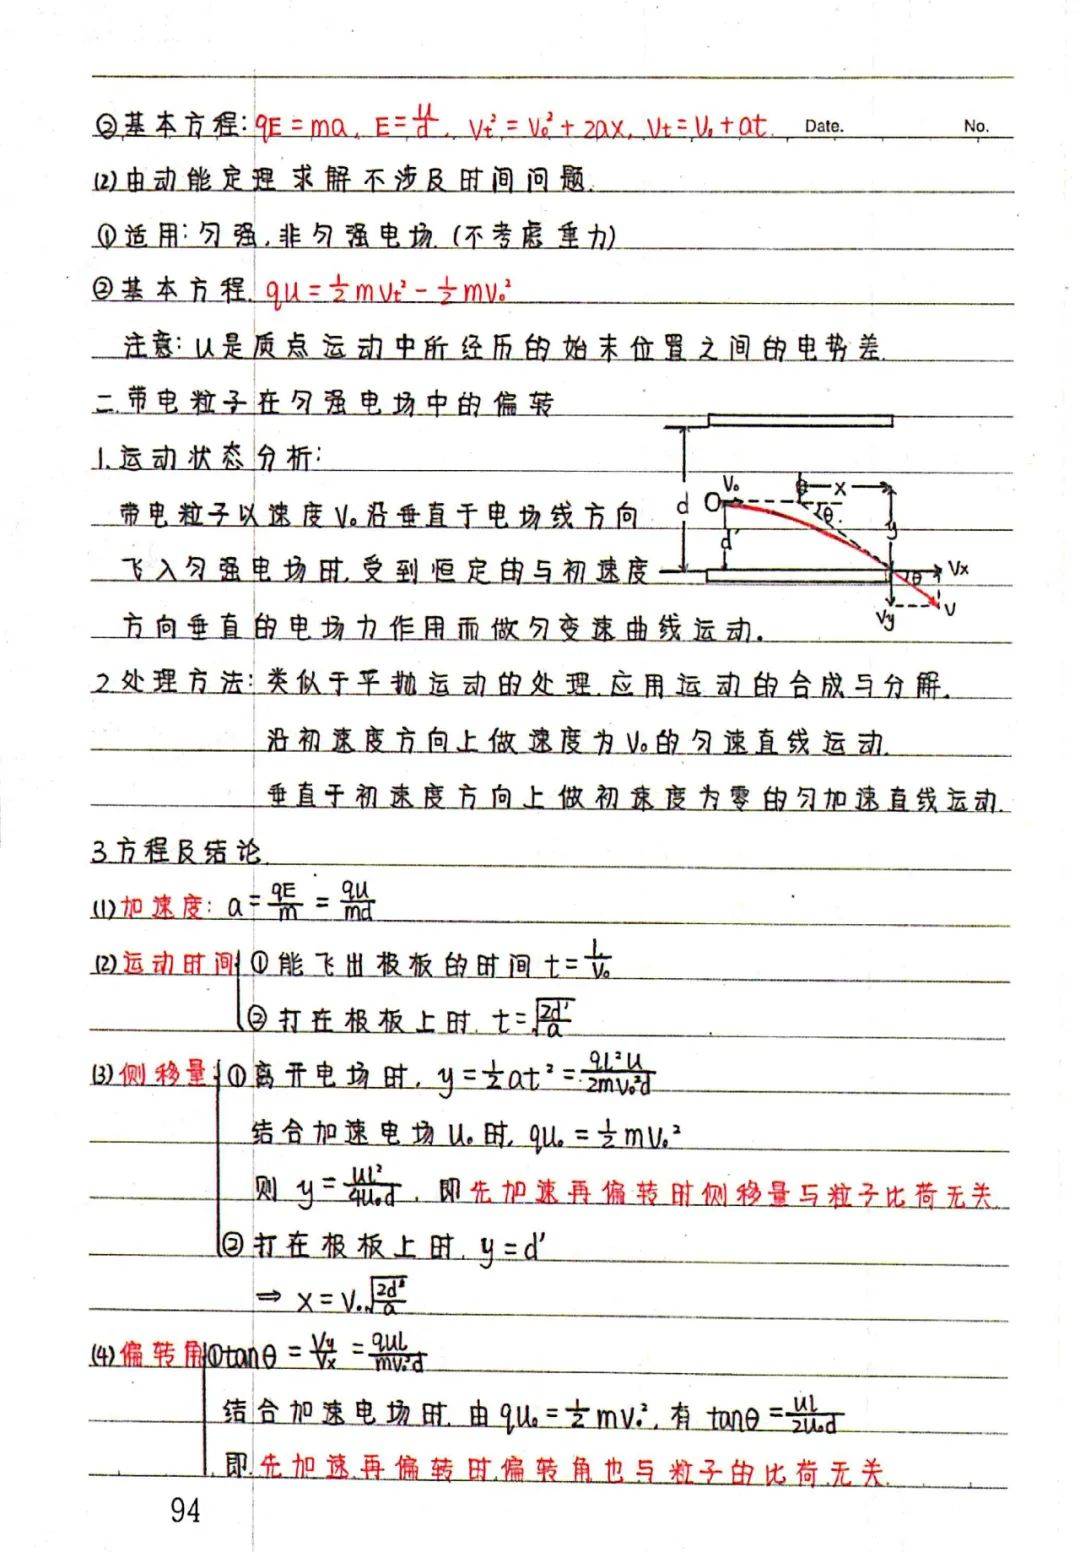 ②基本方程: qE=ma, E=U/d, Vt²=V₀²+2ax, Vt=V₀+at. Date. No.
(2)由动能定理求解不涉及时间问题.
①适用:匀强,非匀强电场.(不考虑重力)
②基本方程. qU=½mVt²-½mV₀²
注意:U是质点运动中所经历的始末位置之间的电势差.
二.带电粒子在匀强电场中的偏转
1.运动状态分析:
带电粒子以速度V₀沿垂直于电场线方向
飞入匀强电场时,受到恒定的与初速度
方向垂直的电场力作用而做匀变速曲线运动.
d O V₀ x θ y d′ θ Vx Vy V
2.处理方法:类似于平抛运动的处理.应用运动的合成与分解.
沿初速度方向上做速度为V₀的匀速直线运动.
垂直于初速度方向上做初速度为零的匀加速直线运动.
3.方程及结论.
(1)加速度: a=qE/m=qU/md
(2)运动时间 ①能飞出极板的时间 t=l/V₀
②打在极板上时. t=√(2d′/a)
(3)侧移量 ①离开电场时, y=½at²=qL²U/2mV₀²d
结合加速电场U₀时, qU₀=½mV₀²
则 y=UL²/4U₀d, 即先加速再偏转时侧移量与粒子比荷无关.
②打在极板上时. y=d′
⇒ x=V₀√(2d′/a)
(4)偏转角 ①tanθ=Vy/Vx=qUL/mV₀²d
结合加速电场时.由qU₀=½mV₀²,有 tanθ=UL/2U₀d
即先加速再偏转时.偏转角也与粒子的比荷无关.
94